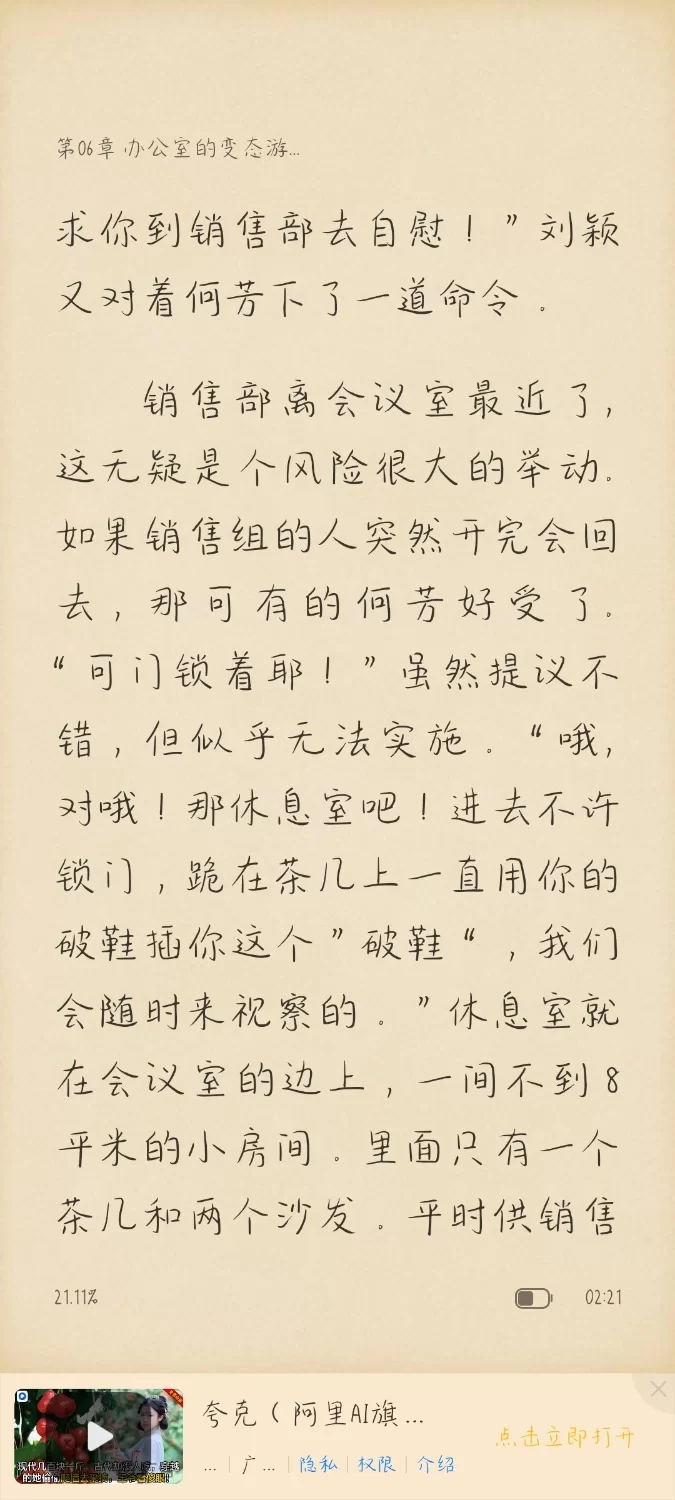 第06章 办公室的变态游...
求你到销售部去自慰！”刘颖
又对着何芳下了一道命令．
销售部离会议室最近了，
这无疑是个风险很大的举动。
如果销售组的人突然开完会回
去，那可有的何芳好受了。
“可门锁着耶！”虽然提议不
错，但似乎无法实施．“哦，
对哦！那休息室吧！进去不许
锁门，跪在茶几上一直用你的
破鞋插你这个”破鞋“，我们
会随时来视察的．”休息室就
在会议室的边上，一间不到8
平米的小房间．里面只有一个
茶几和两个沙发．平时供销售
21.11%
02:21
夸克（阿里AI旗...
点击立即打开
... 广... 隐私 权限 介绍